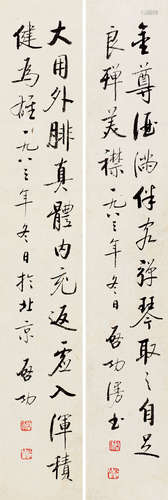 金尊酒滿伴客彈琴取之自足
良殫美襟一九八三年冬日啟功漫書
大用外腓真體內充返虛入渾積
健為雄一九八三年冬日於北京啟功